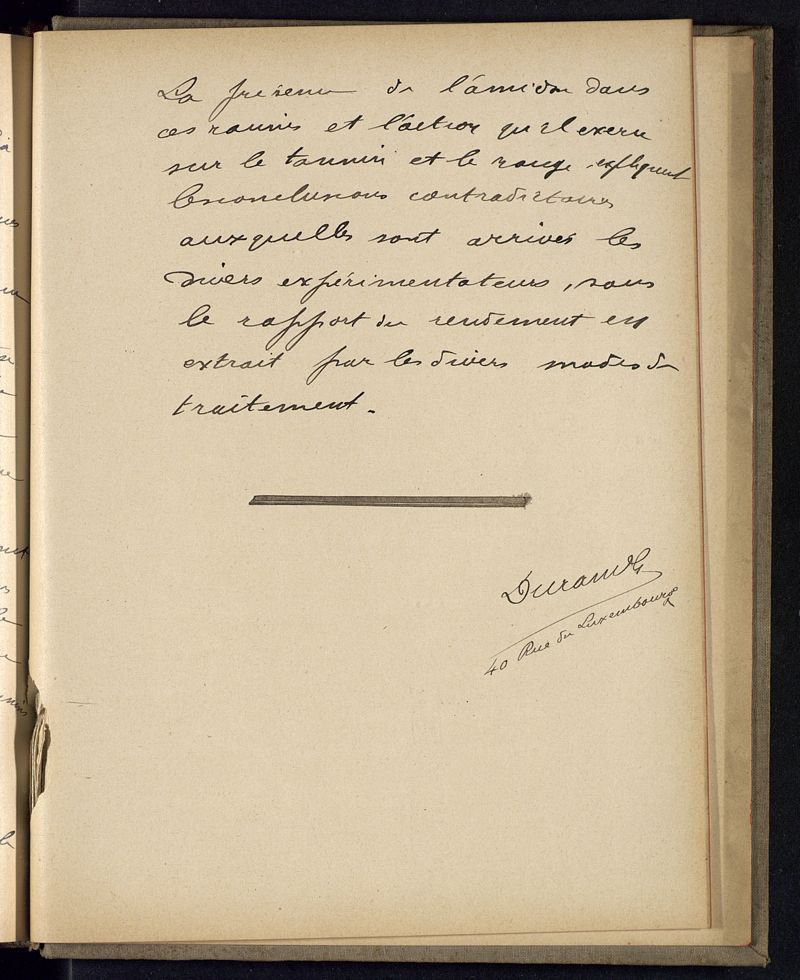 La présence de l'amidon dans
ces racines et l'action qu'il exerce
sur le tannin et le rouge expliquent
les conclusions contradictoires
auxquelles sont arrivés les
divers expérimentateurs, sous
le rapport du rendement en
extrait par les divers modes de
traitement.
Durand
40 Rue du Luxembourg